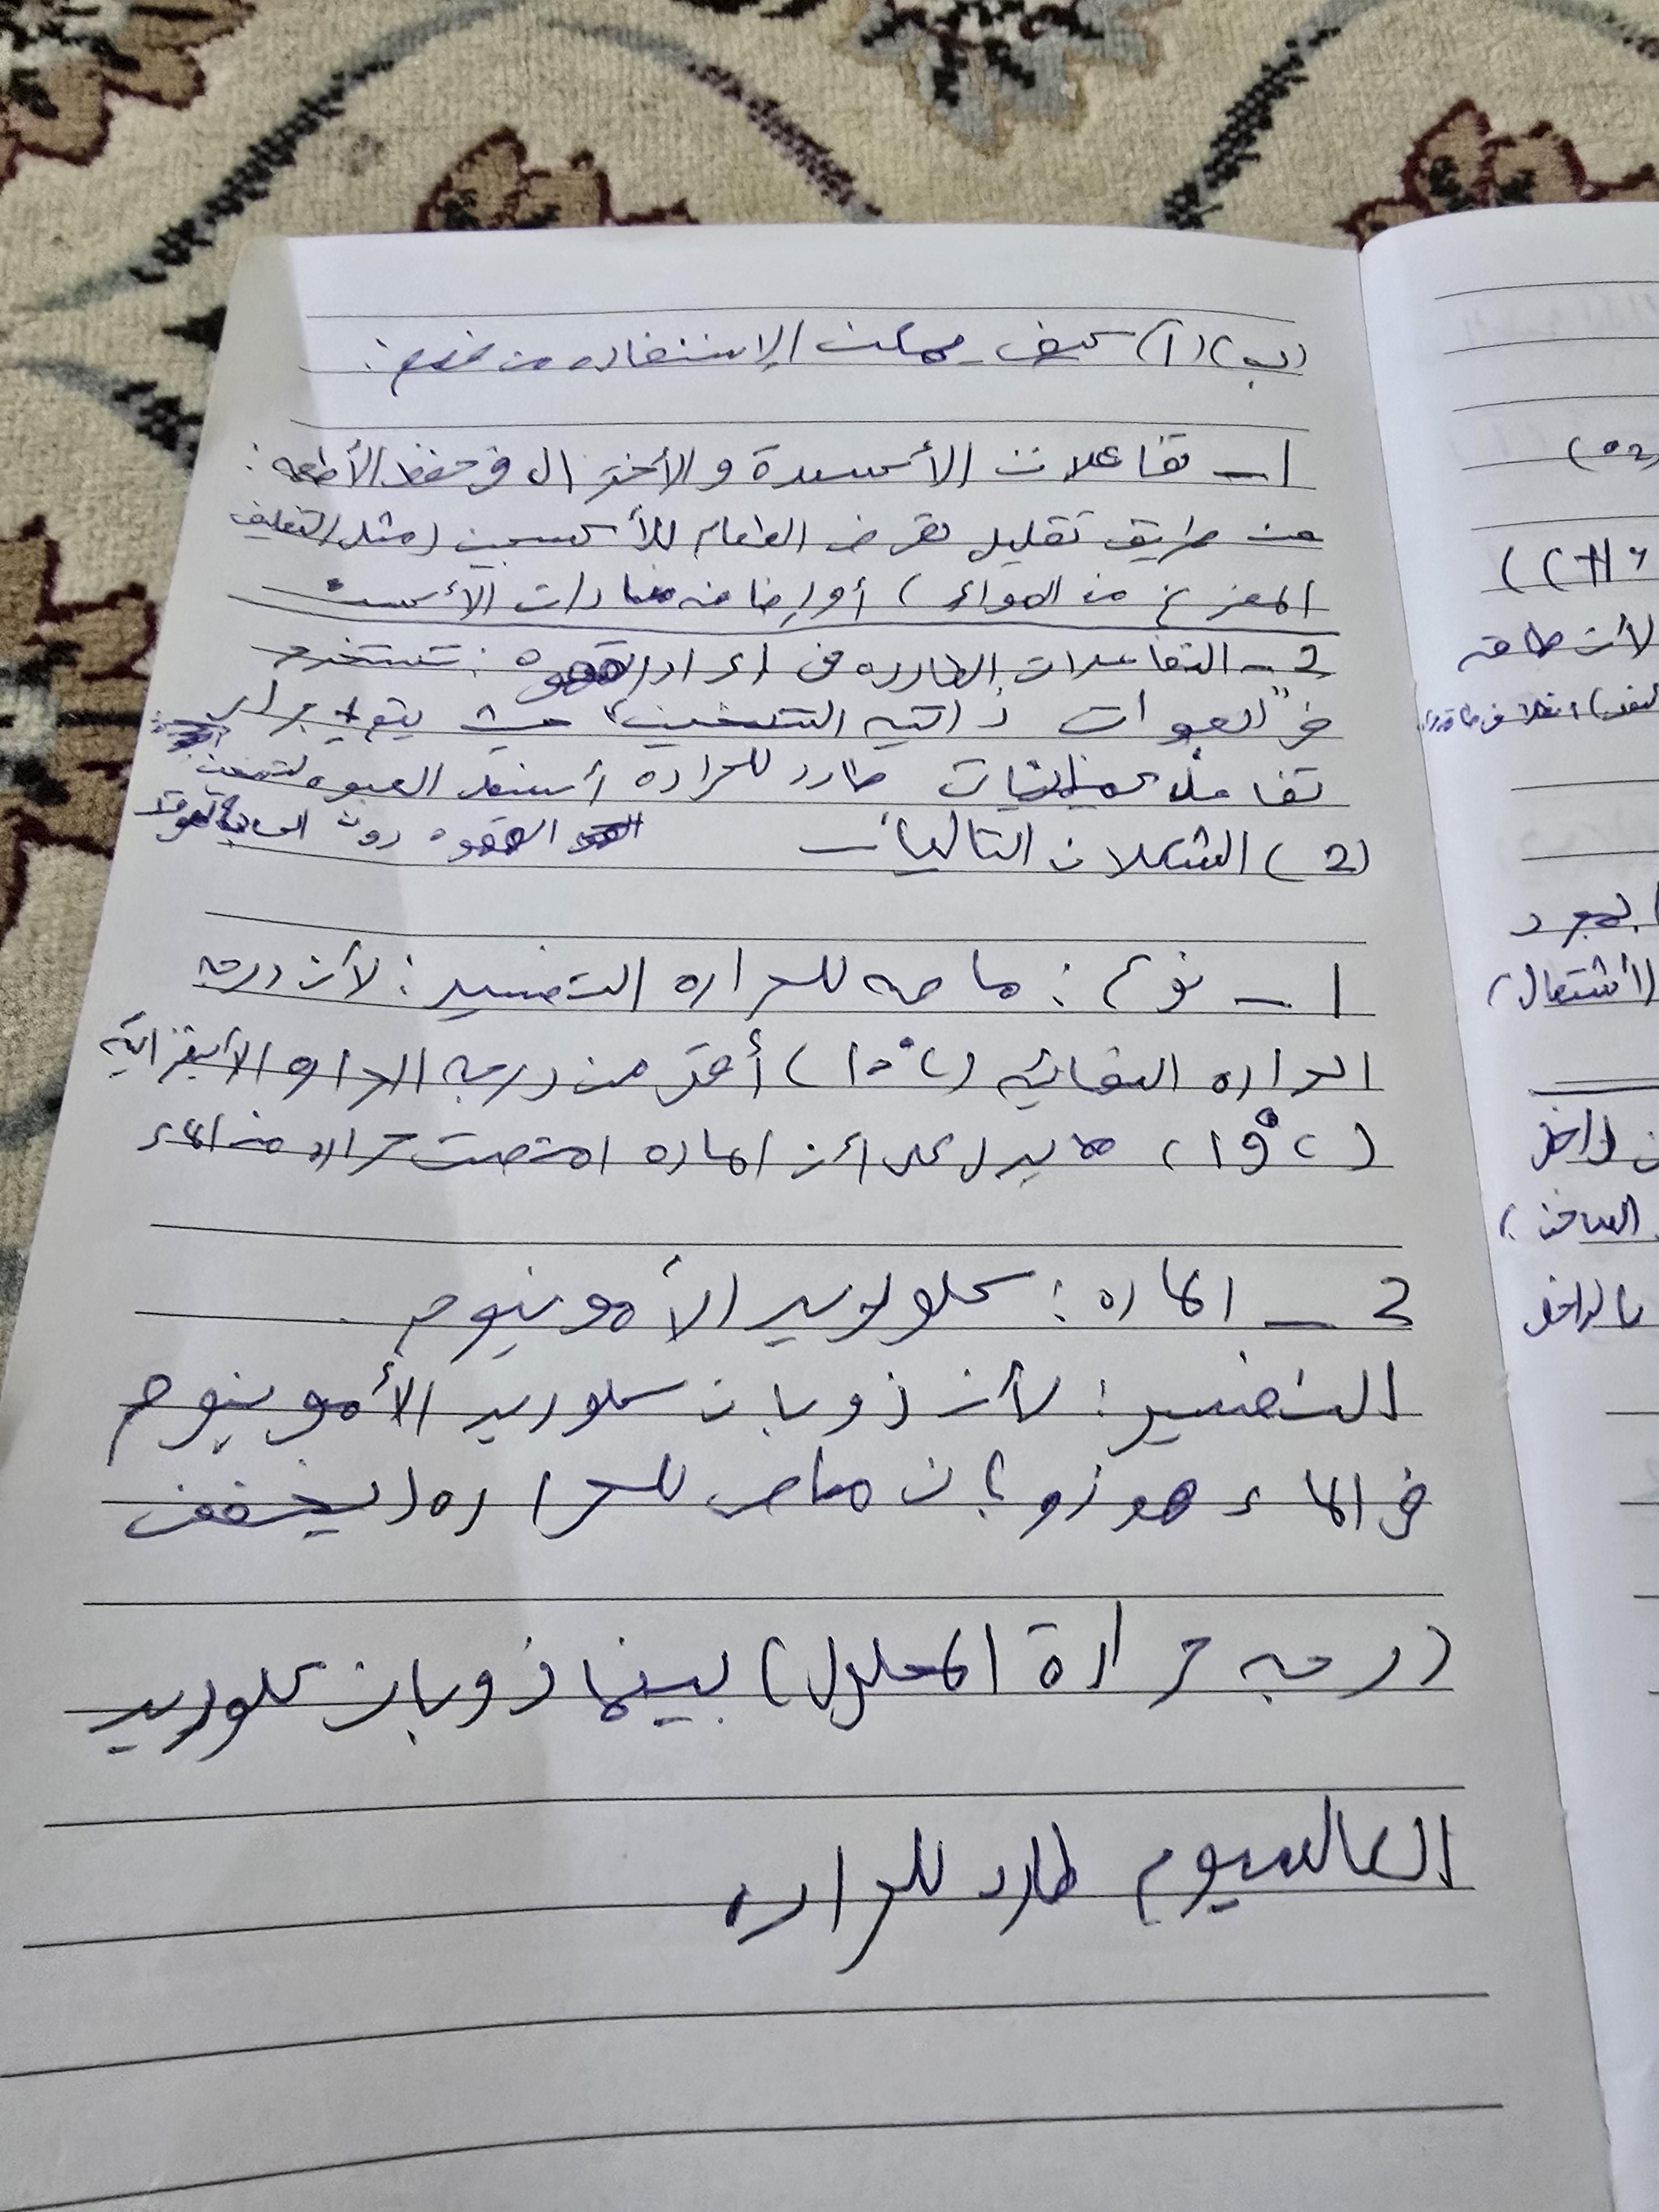 (ب) (أ) كيف يمكن الإستفاده من فهم:
1 - تفاعلات الأكسدة والأختزال في حفظ الأطعمه:
عن طريق تقليل تعرض الطعام للأكسجين (مثل التغليف
المفرغ من الهواء) أو إضافه مضادات الأكسدة
2 - التفاعلات الطارده في إعداد القهوه: تستخدم
في "العبوات ذاتيه التسخين" حيث يتم
تفاعل طارد للحراره أسفل العبوه لتسخين
القهوه دون الحاجه لموقد
(2) الشكلان التاليان
1 - نوع: ماصه للحراره التفسير: لأن درجه
الحراره النهائيه (10°C) أقل من درجه الحراره الأبتدائيه
(19°C) مما يدل على أن الماده امتصت حراره من الماء
2 - الماده: كلوريد الأمونيوم.
التفسير: لأن ذوبان كلوريد الأمونيوم
في الماء هو ذوبان ماص للحراره (يخفض
درجه حرارة المحلول) بينما ذوبان كلوريد
الكالسيوم طارد للحراره
لأن طاقه
بمجرد
(أشتعال)
من داخل
الساخن)
بالداخل